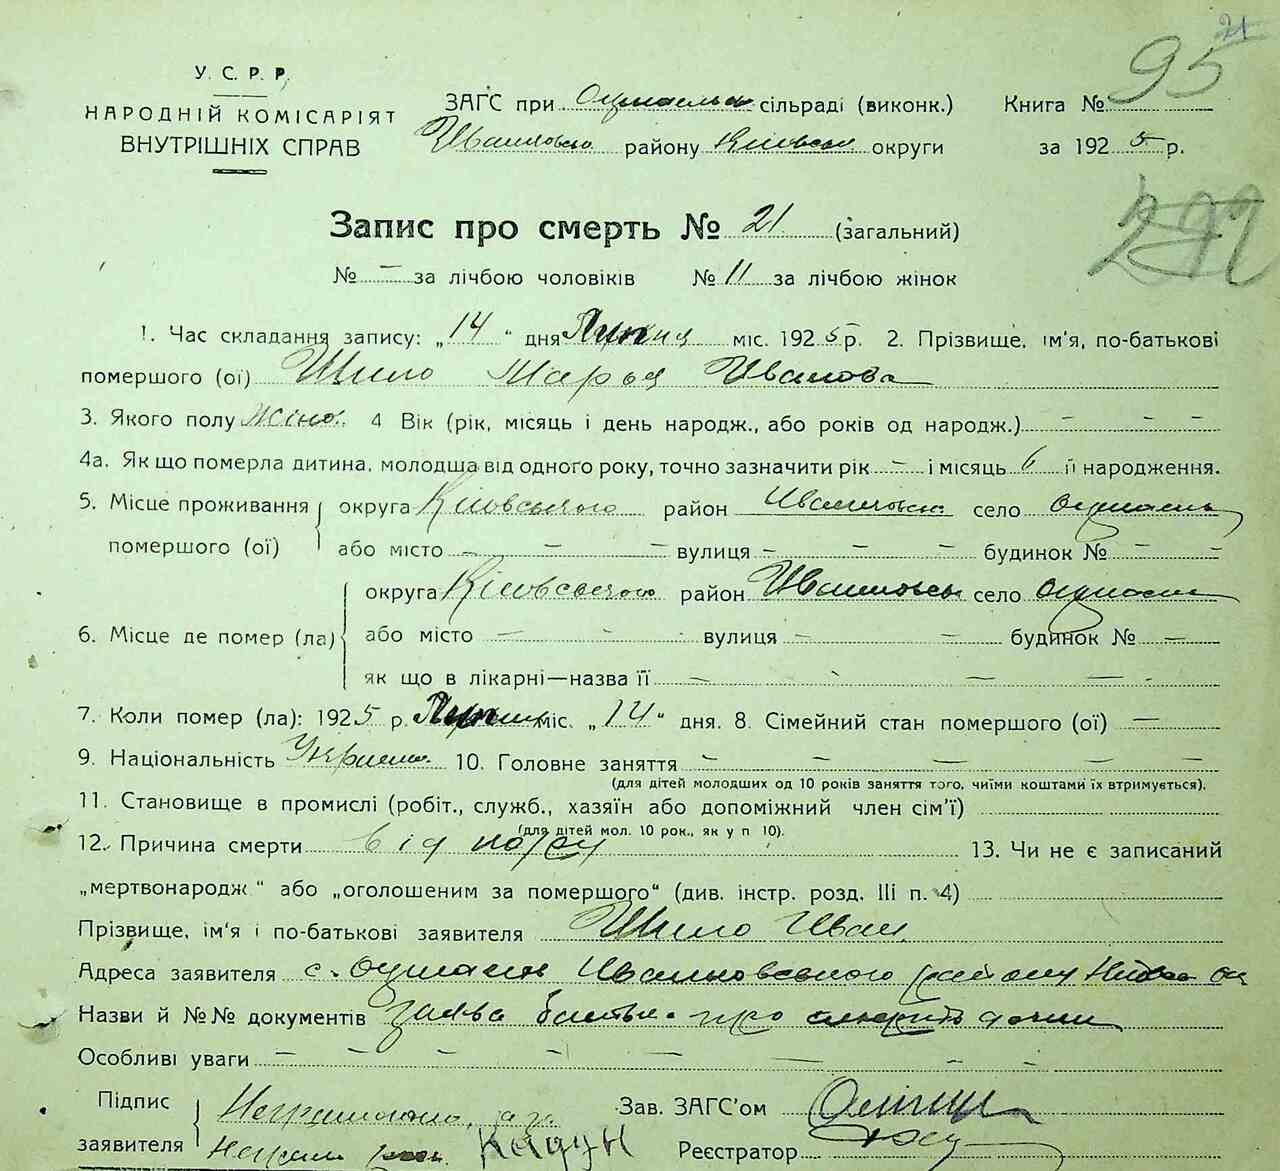 21
95
У. С. Р. Р.
НАРОДНІЙ КОМІСАРІЯТ
ВНУТРІШНІХ СПРАВ
ЗАГС при сільраді (виконк.)
району Київськ округи
Книга №
за 1925 р.
Запис про смерть № 21 (загальний)
№ – за лічбою чоловіків № 11 за лічбою жінок
1. Час складання запису: „14“ дня Липня міс. 1925 р. 2. Прізвище, ім'я, по-батькові
помершого (ої) Шило Марья Иванова
3. Якого полу Жіно. 4 Вік (рік, місяць і день народж., або років од народж.) – – –
4а. Як що померла дитина, молодша від одного року, точно зазначити рік – і місяць 6 її народження.
5. Місце проживання помершого (ої)
округа Київського район село
або місто – – – вулиця – – – будинок № – –
6. Місце де помер (ла)
округа Київського район село
або місто – – – вулиця – – будинок № –
як що в лікарні—назва її – – – –
7. Коли помер (ла): 1925 р. Липня міс. „14“ дня. 8. Сімейний стан помершого (ої) –
9. Національність Україн. 10. Головне заняття – – – – – –
(для дітей молодших од 10 років заняття того, чиїми коштами їх втримується).
11. Становище в промислі (робіт., служб., хазяїн або допоміжний член сім'ї)
(для дітей мол. 10 рок., як у п 10).
12. Причина смерти від 13. Чи не є записаний
„мертвонародж“ або „оголошеним за помершого“ (див. інстр. розд. III п. 4)
Прізвище, ім'я і по-батькові заявителя Шило Иван
Адреса заявителя с. району
Назви й №№ документів заява батька про смерть дочки
Особливі уваги – – – – – – – –
Підпис заявителя
Зав. ЗАГС'ом
Реєстратор